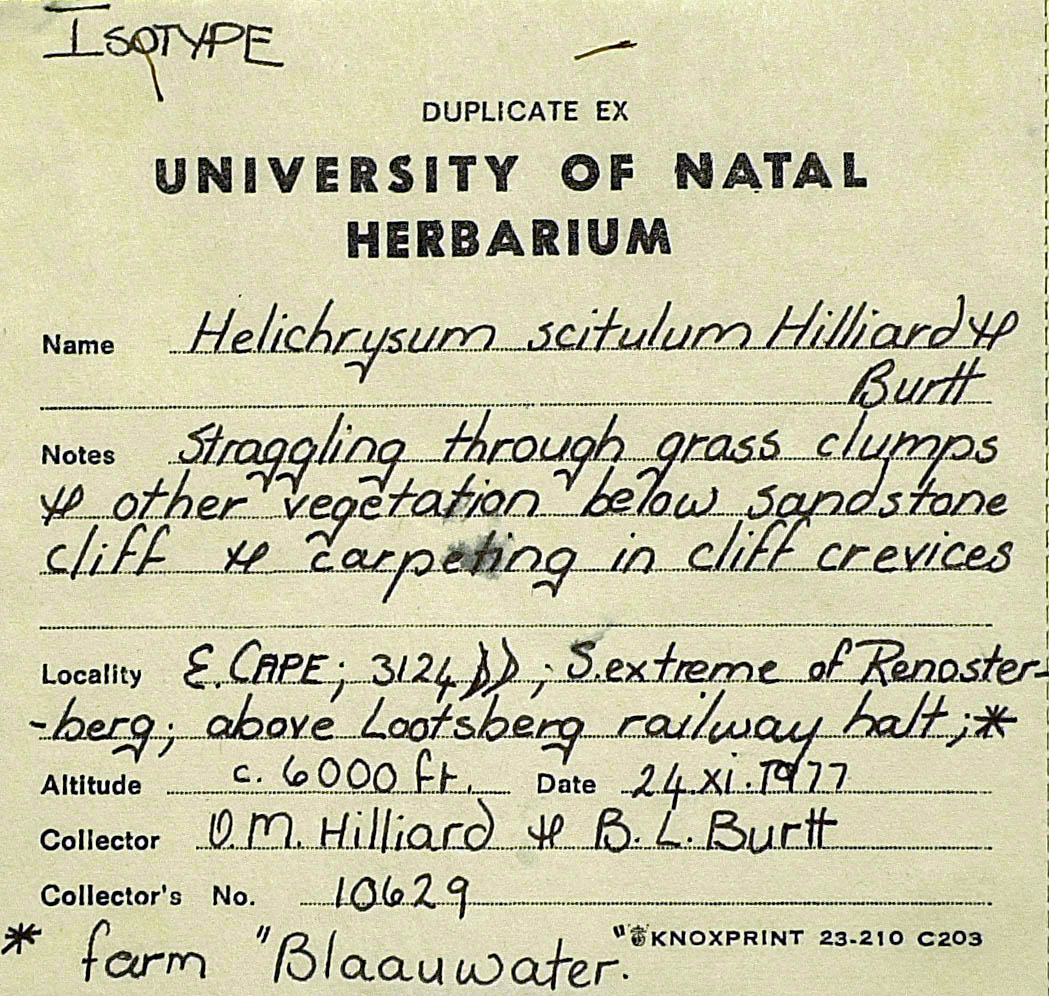 ISOTYPE
DUPLICATE EX
UNIVERSITY OF NATAL
HERBARIUM
Name Helichrysum scitulum Hilliard &
Burtt
Notes Straggling through grass clumps
& other vegetation below sandstone
cliff & carpeting in cliff crevices
Locality E. CAPE; 3124 DD; S. extreme of Renoster-
-berg; above Lootsberg railway halt;*
Altitude c. 6000 ft. Date 24.xi.1977
Collector O.M. Hilliard & B.L. Burtt
Collector's No. 10629
* farm "Blaauwater."
KNOXPRINT 23-210 C203